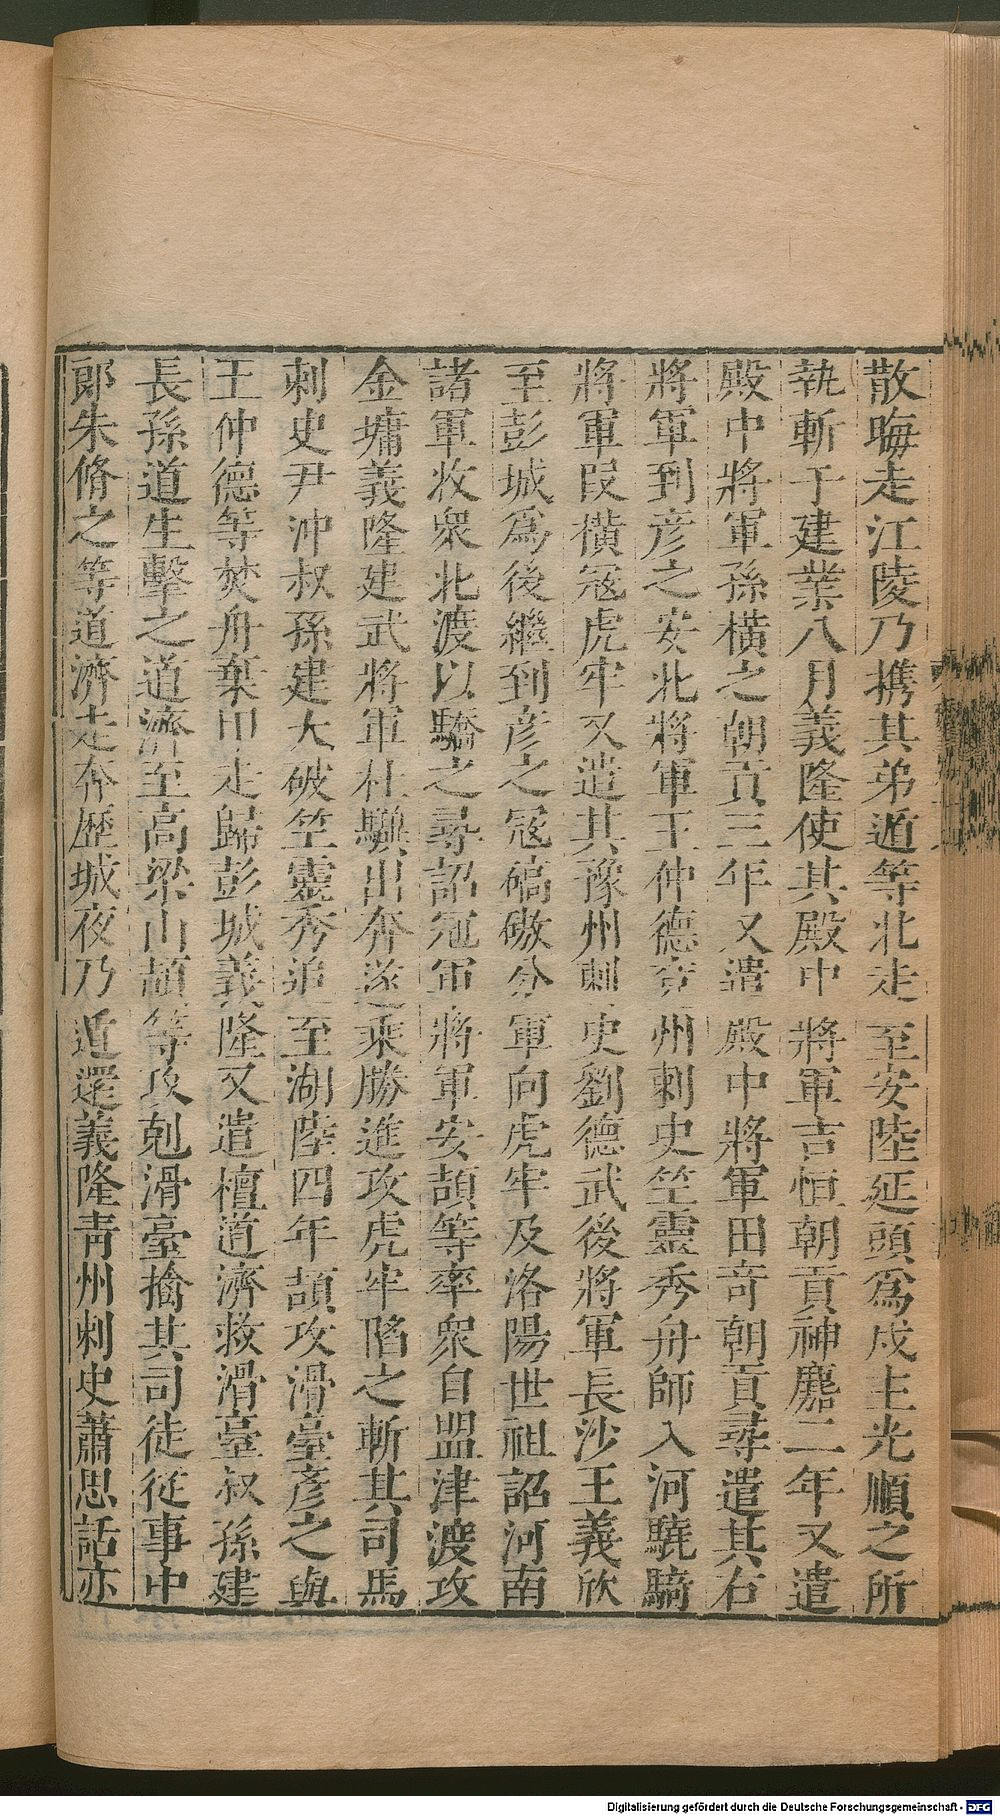 散晦走江陵乃携其弟遁等北走至安陸延頭爲戍主光順之所
執斬于建業八月義隆使其殿中將軍吉恒朝貢神䴥二年又遣
殿中將軍孫橫之朝貢三年又遣殿中將軍田奇朝貢尋遣其右
將軍到彦之安北將軍王仲德兗州刺史竺靈秀舟師入河驍騎
將軍段橫冦虎牢又遣其豫州刺史劉德武後將軍長沙王義欣
至彭城爲後繼到彦之冦碻磝分軍向虎牢及洛陽世祖詔河南
諸軍收衆北渡以驕之尋詔冠軍將軍安頡等率衆自盟津渡攻
金墉義隆建武將軍杜驥出奔遂乘勝進攻虎牢陷之斬其司馬
刺史尹沖叔孫建大破竺靈秀追至湖陸四年頡攻滑臺彦之與
王仲德等焚舟棄甲走歸彭城義隆又遣檀道濟救滑臺叔孫建
長孫道生擊之道濟至高梁山頡等攻剋滑臺擒其司徒從事中
郎朱脩之等道濟走奔歷城夜乃遁還義隆靑州刺史蕭思話亦
Digitalisierung gefördert durch die Deutsche Forschungsgemeinschaft - DFG